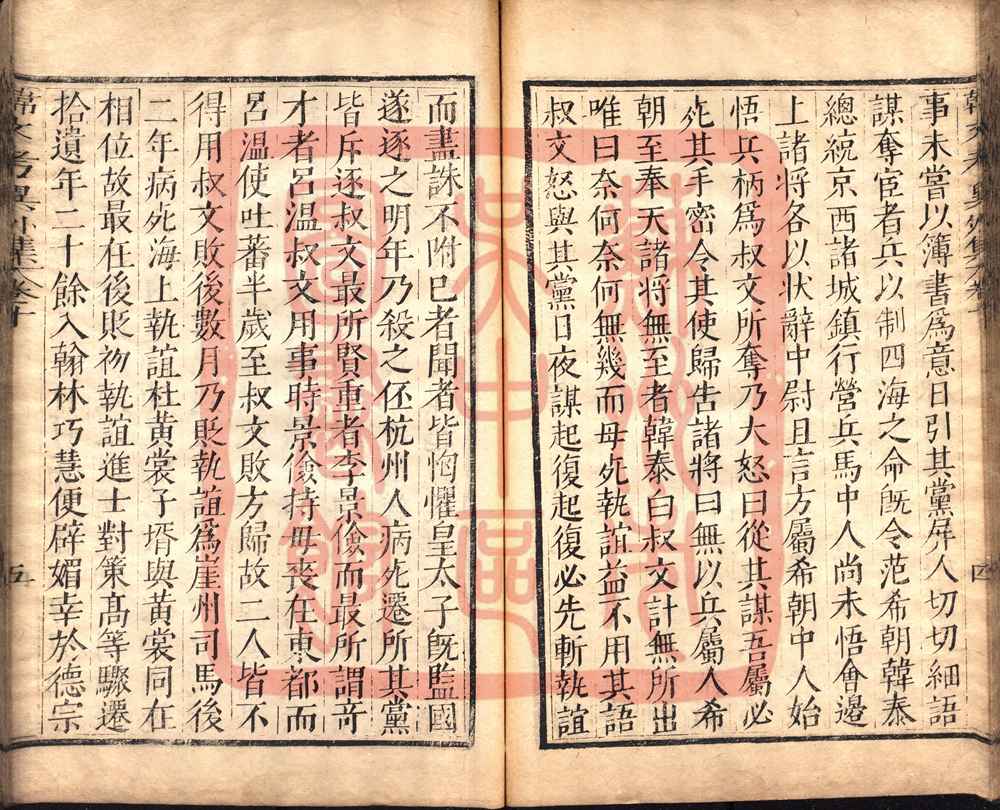 事未嘗以簿書爲意日引其黨屏人切切細語
謀奪宦者兵以制四海之命既令范希朝韓泰
總統京西諸城鎮行營兵馬中人尚未悟會邊
上諸將各以狀辭中尉且言方屬希朝中人始
悟兵柄爲叔文所奪乃大怒曰從其謀吾屬必
死其手密令其使歸告諸將曰無以兵屬人希
朝至奉天諸將無至者韓泰白叔文計無所出
唯曰奈何奈何無幾而母死執誼益不用其語
叔文怒與其黨日夜謀起復起復必先斬執誼
四
而盡誅不附已者聞者皆恟懼皇太子既監國
遂逐之明年乃殺之伾杭州人病死遷所其黨
皆斥逐叔文最所賢重者李景儉而最所謂竒
才者呂溫叔文用事時景儉持母喪在東都而
呂溫使吐蕃半歲至叔文敗方歸故二人皆不
得用叔文敗後數月乃貶執誼爲崖州司馬後
二年病死海上執誼杜黄裳子壻與黄裳同在
相位故最在後貶初執誼進士對策高等驟遷
拾遺年二十餘入翰林巧慧便辟媚幸於德宗
五